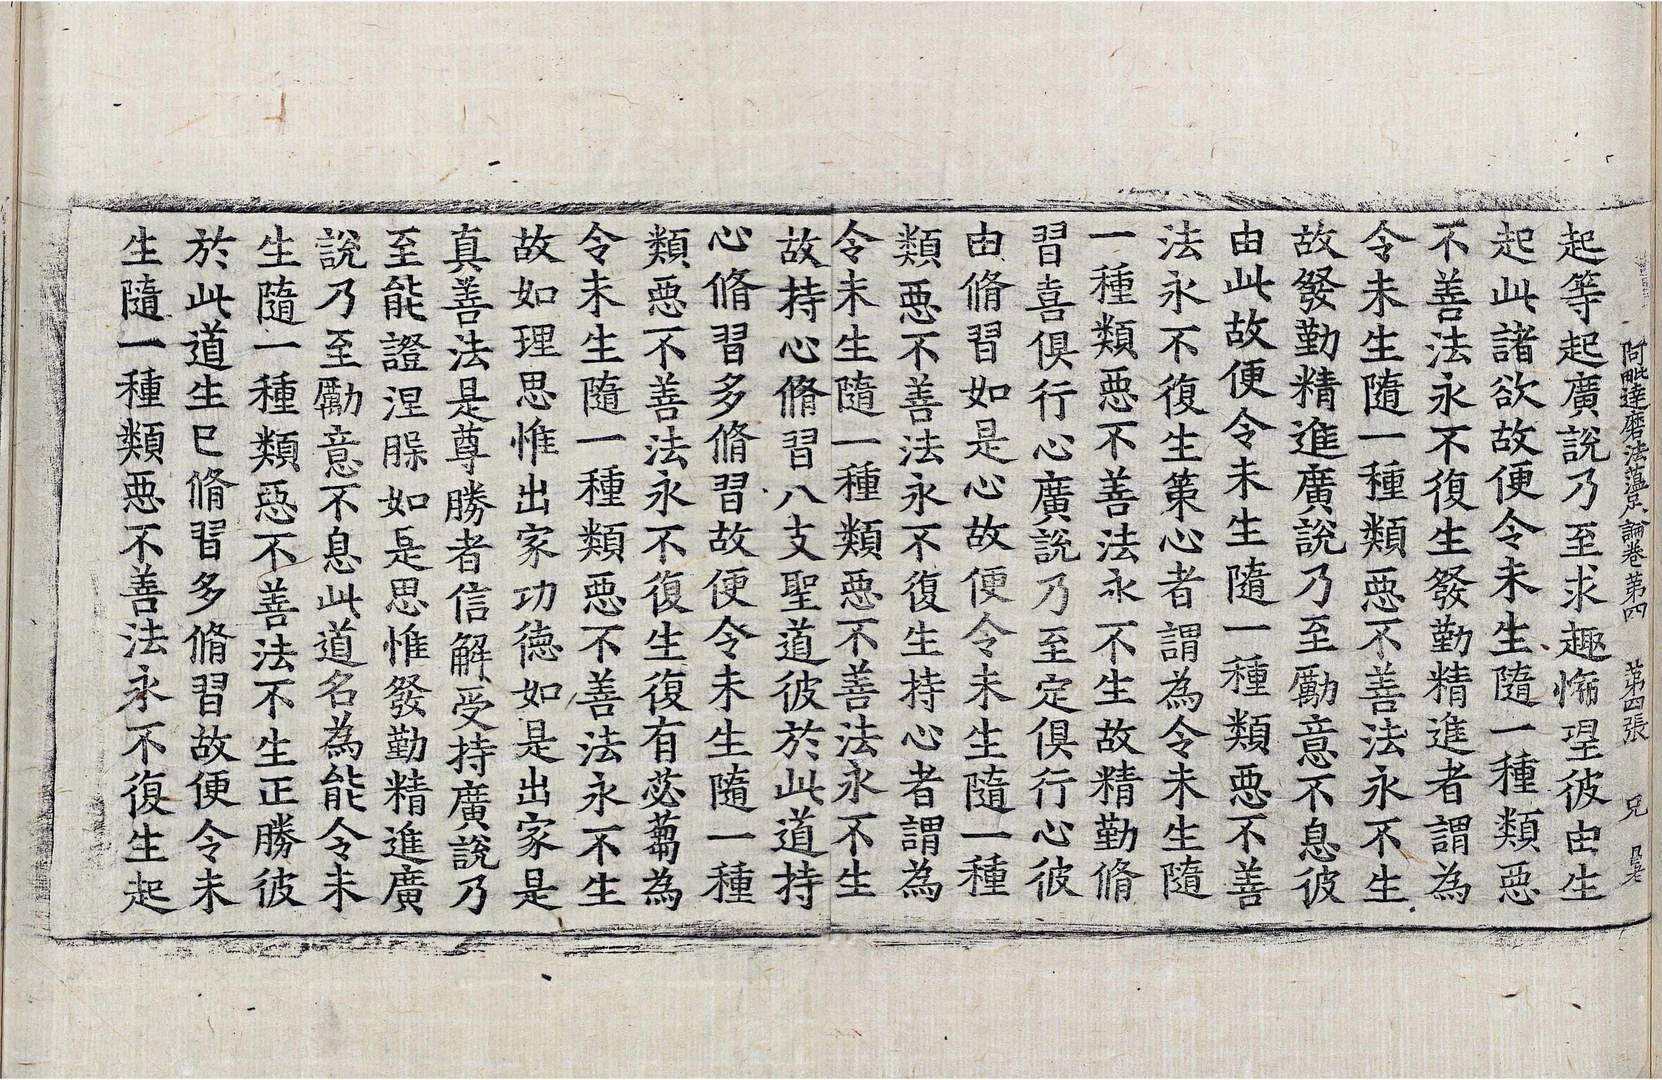 阿毗達磨法蘊足論卷第四 第四張 兄
起等起廣說乃至求趣悕望彼由生
起此諸欲故便令未生隨一種類惡
不善法永不復生發勤精進者謂為
令未生隨一種類惡不善法永不生
故發勤精進廣說乃至勵意不息彼
由此故便令未生隨一種類惡不善
法永不復生策心者謂為令未生隨
一種類惡不善法永不生故精勤脩
習喜俱行心廣說乃至定俱行心彼
由脩習如是心故便令未生隨一種
類惡不善法永不復生持心者謂為
令未生隨一種類惡不善法永不生
故持心脩習八支聖道彼於此道持
心脩習多脩習故便令未生隨一種
類惡不善法永不復生復有苾蒭為
令未生隨一種類惡不善法永不生
故如理思惟出家功德如是出家是
真善法是尊勝者信解受持廣說乃
至能證涅槃如是思惟發勤精進廣
說乃至勵意不息此道名為能令未
生隨一種類惡不善法不生正勝彼
於此道生已脩習多脩習故便令未
生隨一種類惡不善法永不復生起